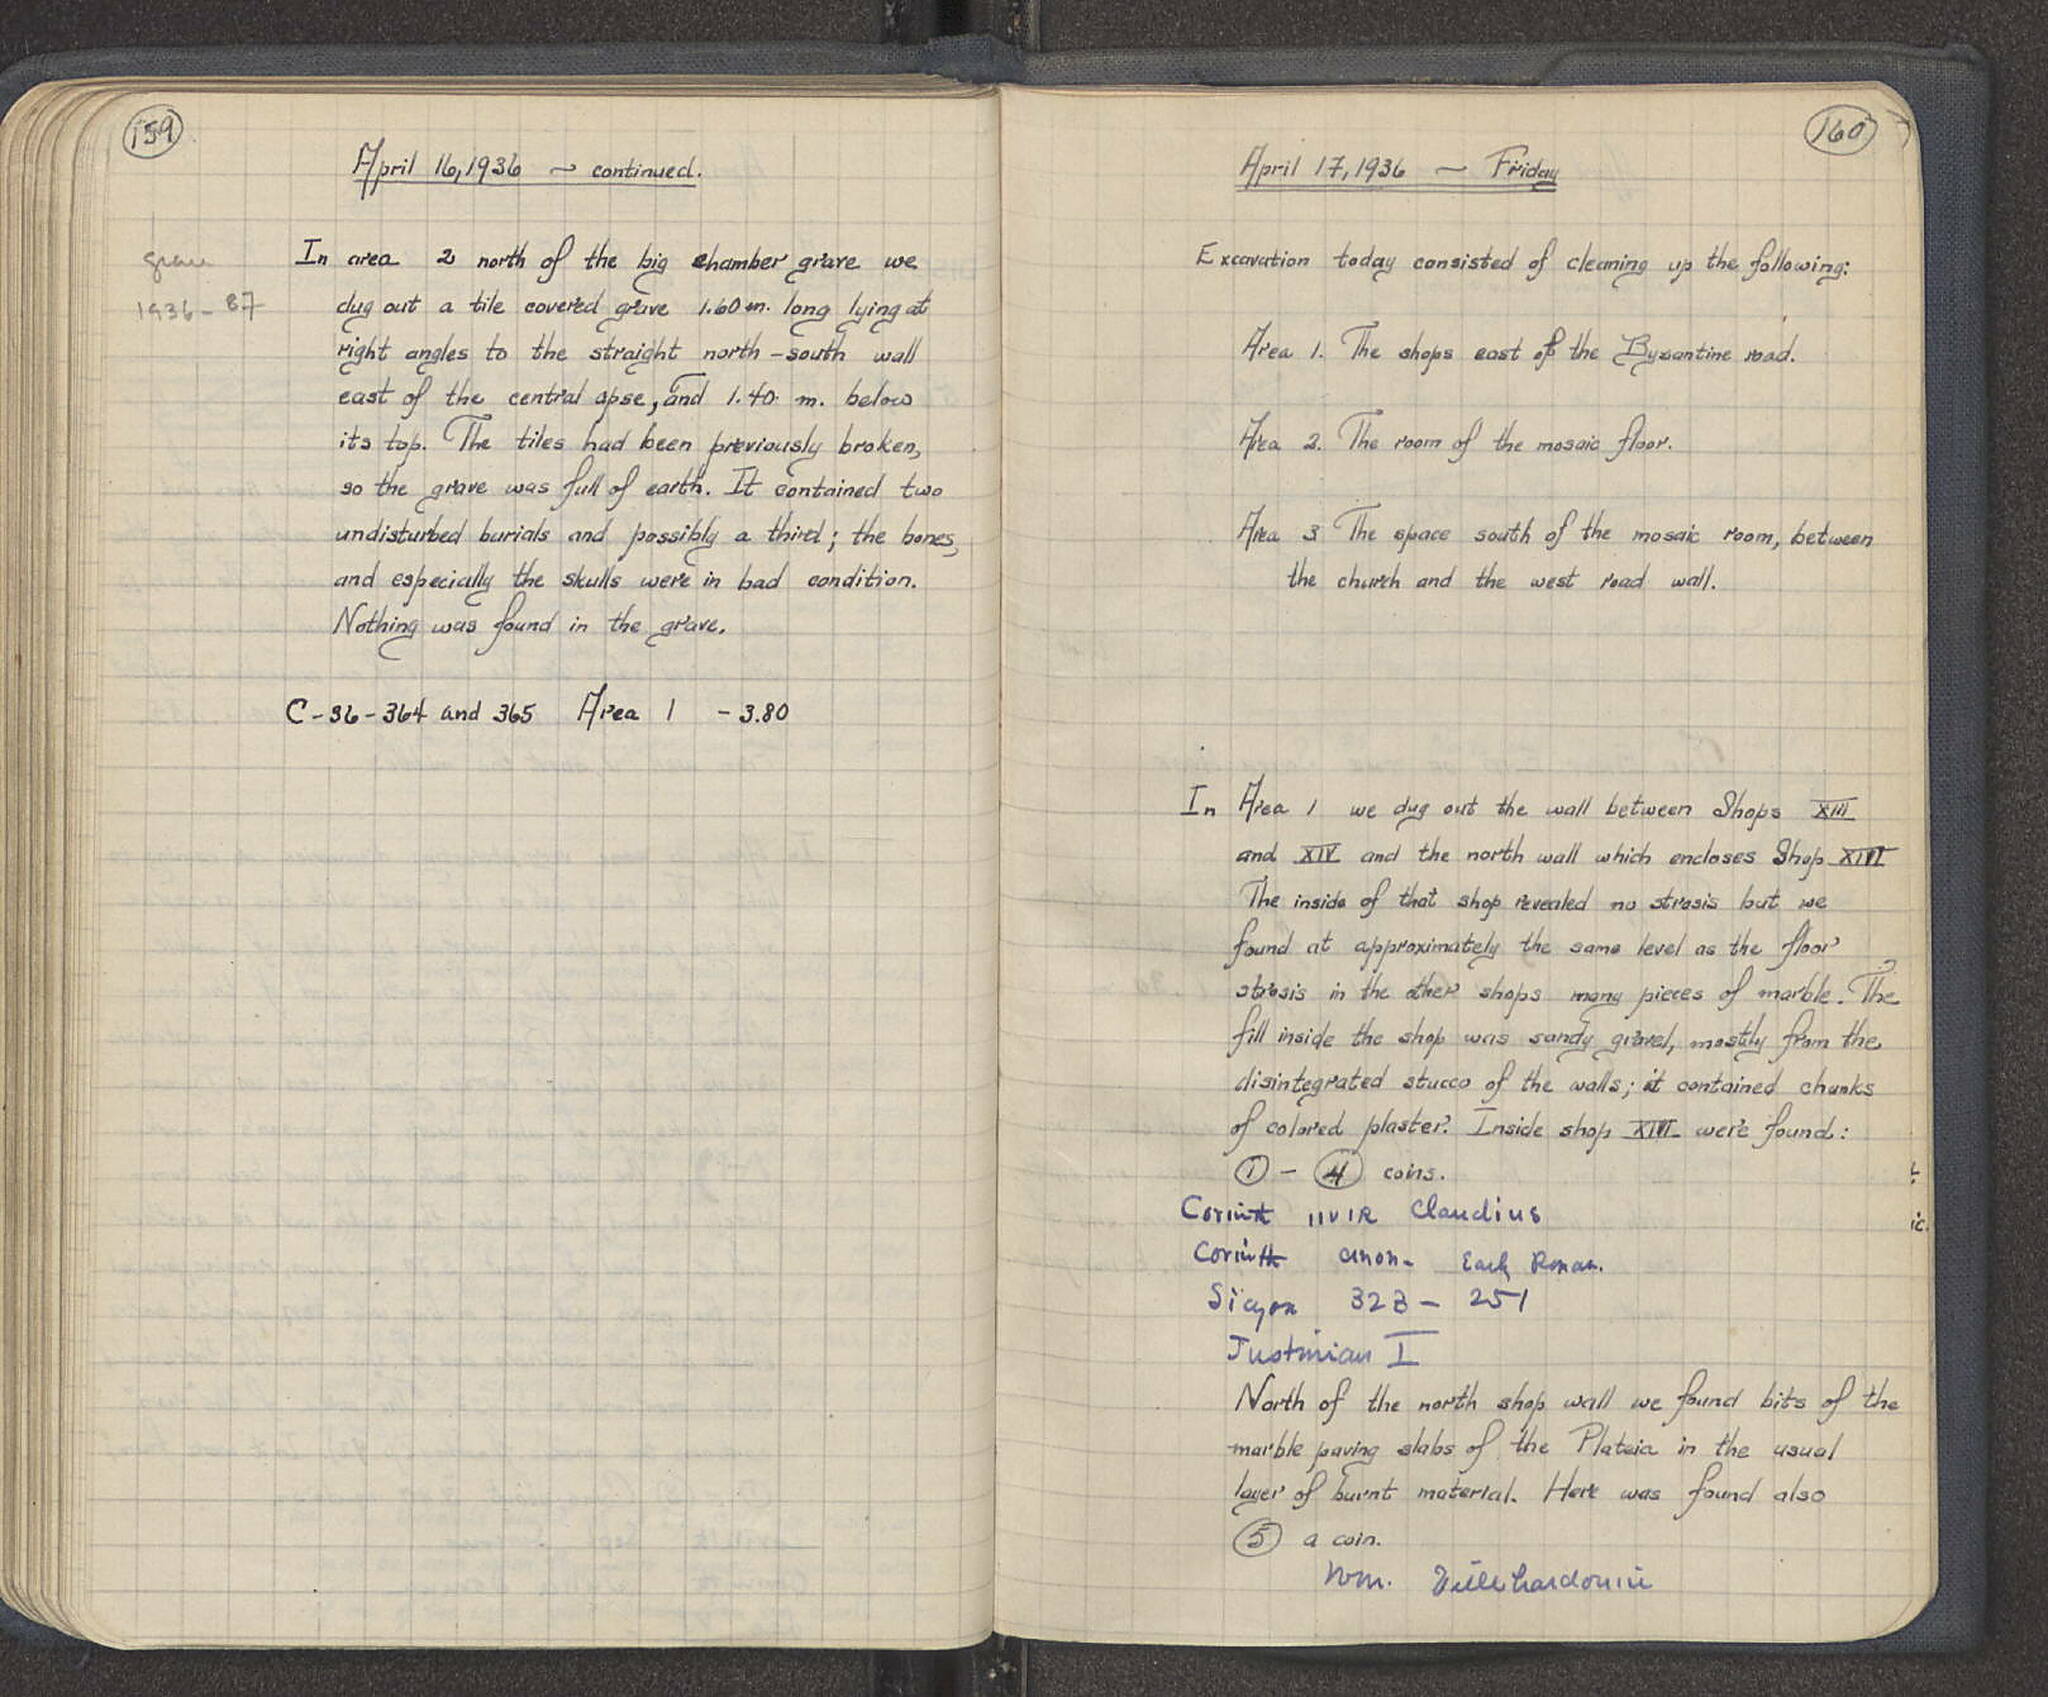 159
April 16, 1936 ~ continued.
grave
1936-87
In area 2 north of the big chamber grave we
dug out a tile covered grave 1.60 m. long lying at
right angles to the straight north-south wall
east of the central apse, and 1.40 m. below
its top. The tiles had been previously broken,
so the grave was full of earth. It contained two
undisturbed burials and possibly a third; the bones,
and especially the skulls were in bad condition.
Nothing was found in the grave.
C-36-364 and 365 Area 1 -3.80
160
April 17, 1936 ~ Friday
Excavation today consisted of cleaning up the following:
Area 1. The shops east of the Byzantine road.
Area 2. The room of the mosaic floor.
Area 3 The space south of the mosaic room, between
the church and the west road wall.
In Area 1 we dug out the wall between Shops XIII
and XIV and the north wall which encloses Shop
The inside of that shop revealed no strosis but we
found at approximately the same level as the floor
strosis in the other shops many pieces of marble. The
fill inside the shop was sandy gravel, mostly from the
disintegrated stucco of the walls; it contained chunks
of colored plaster. Inside shop were found:
1 - 4 coins.
Corinth IIVIR Claudius
Corinth anon. Early Roman.
Sicyon 323-251
Justinian I
North of the north shop wall we found bits of the
marble paving slabs of the Plateia in the usual
layer of burnt material. Here was found also
5 a coin.
Wm. Villehardouin